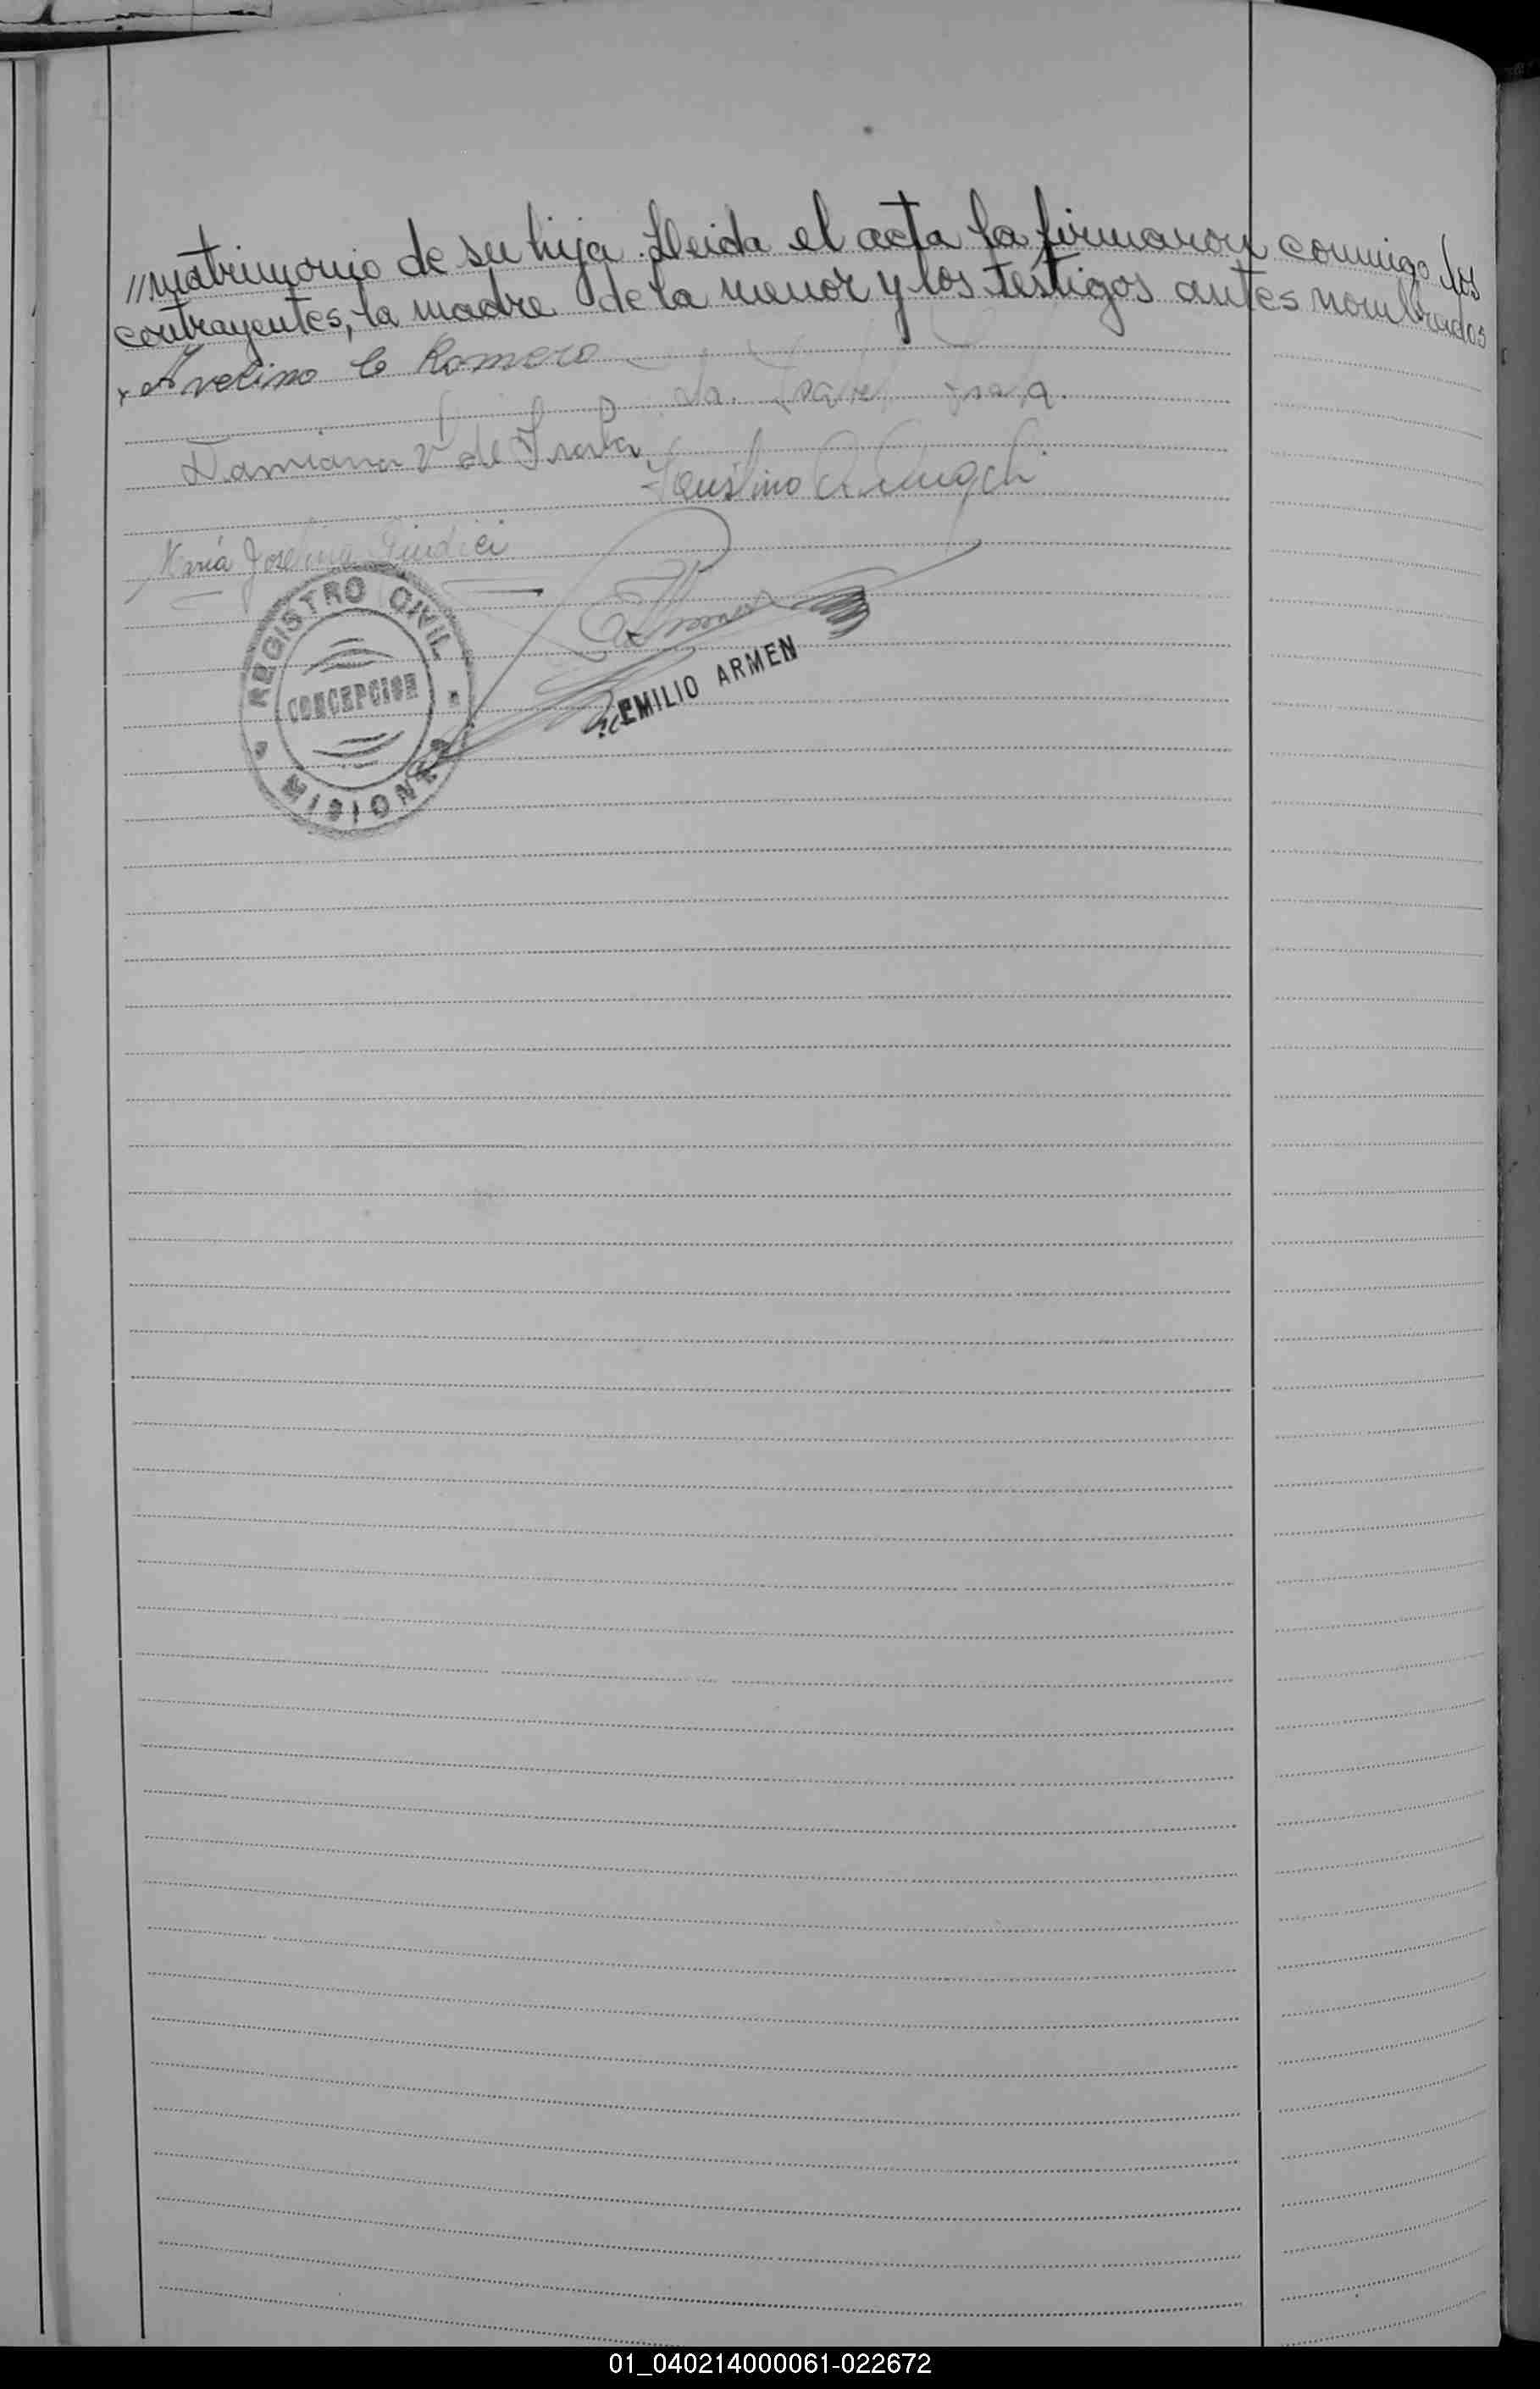 //matrimonio de su hija. Lleida el acta la firmaron conmigo los
contrayentes, la madre de la menor y los testigos antes nombrados
Avelino C Romero
Damiana V de
Faustino
María Josefina Giudici
REGISTRO CIVIL
CONCEPCION
MISIONES
EMILIO ARMEN
01_040214000061-022672